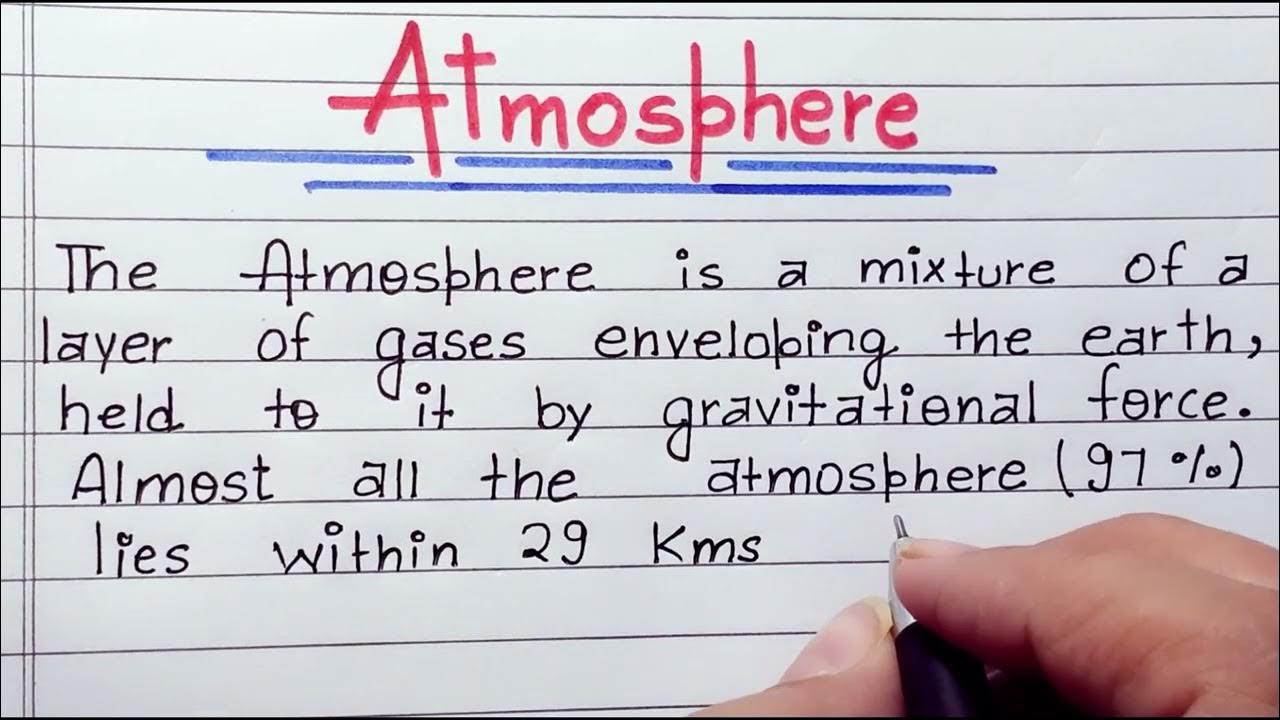 Atmosphere
The Atmosphere is a mixture of a
layer of gases enveloping the earth,
held to it by gravitational force.
Almost all the atmosphere (97%)
lies within 29 Kms